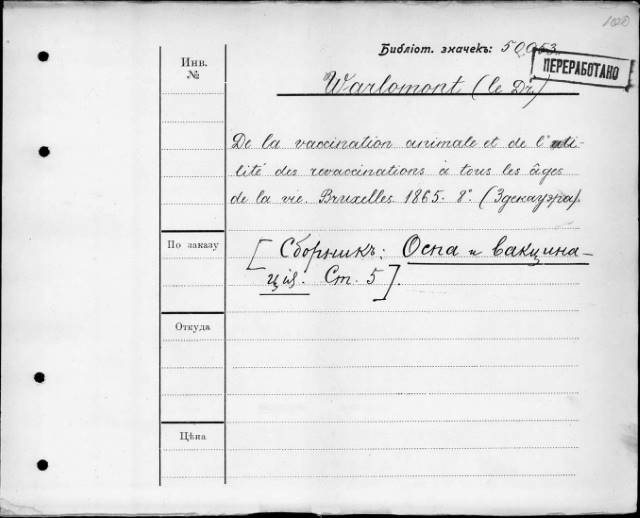 1020
Библіот. значекъ: 50053
ПЕРЕРАБОТАНО
Инв.
№
Warlomont (le Dr)
De la vaccination animale et de l'uti-
lité des revaccinations à tous les âges
de la vie. Bruxelles 1865. 8°. (Здекауэра).
По заказу
[Сборникъ: Оспа и вакцина-
ція. Ст. 5].
Откуда
Цѣна